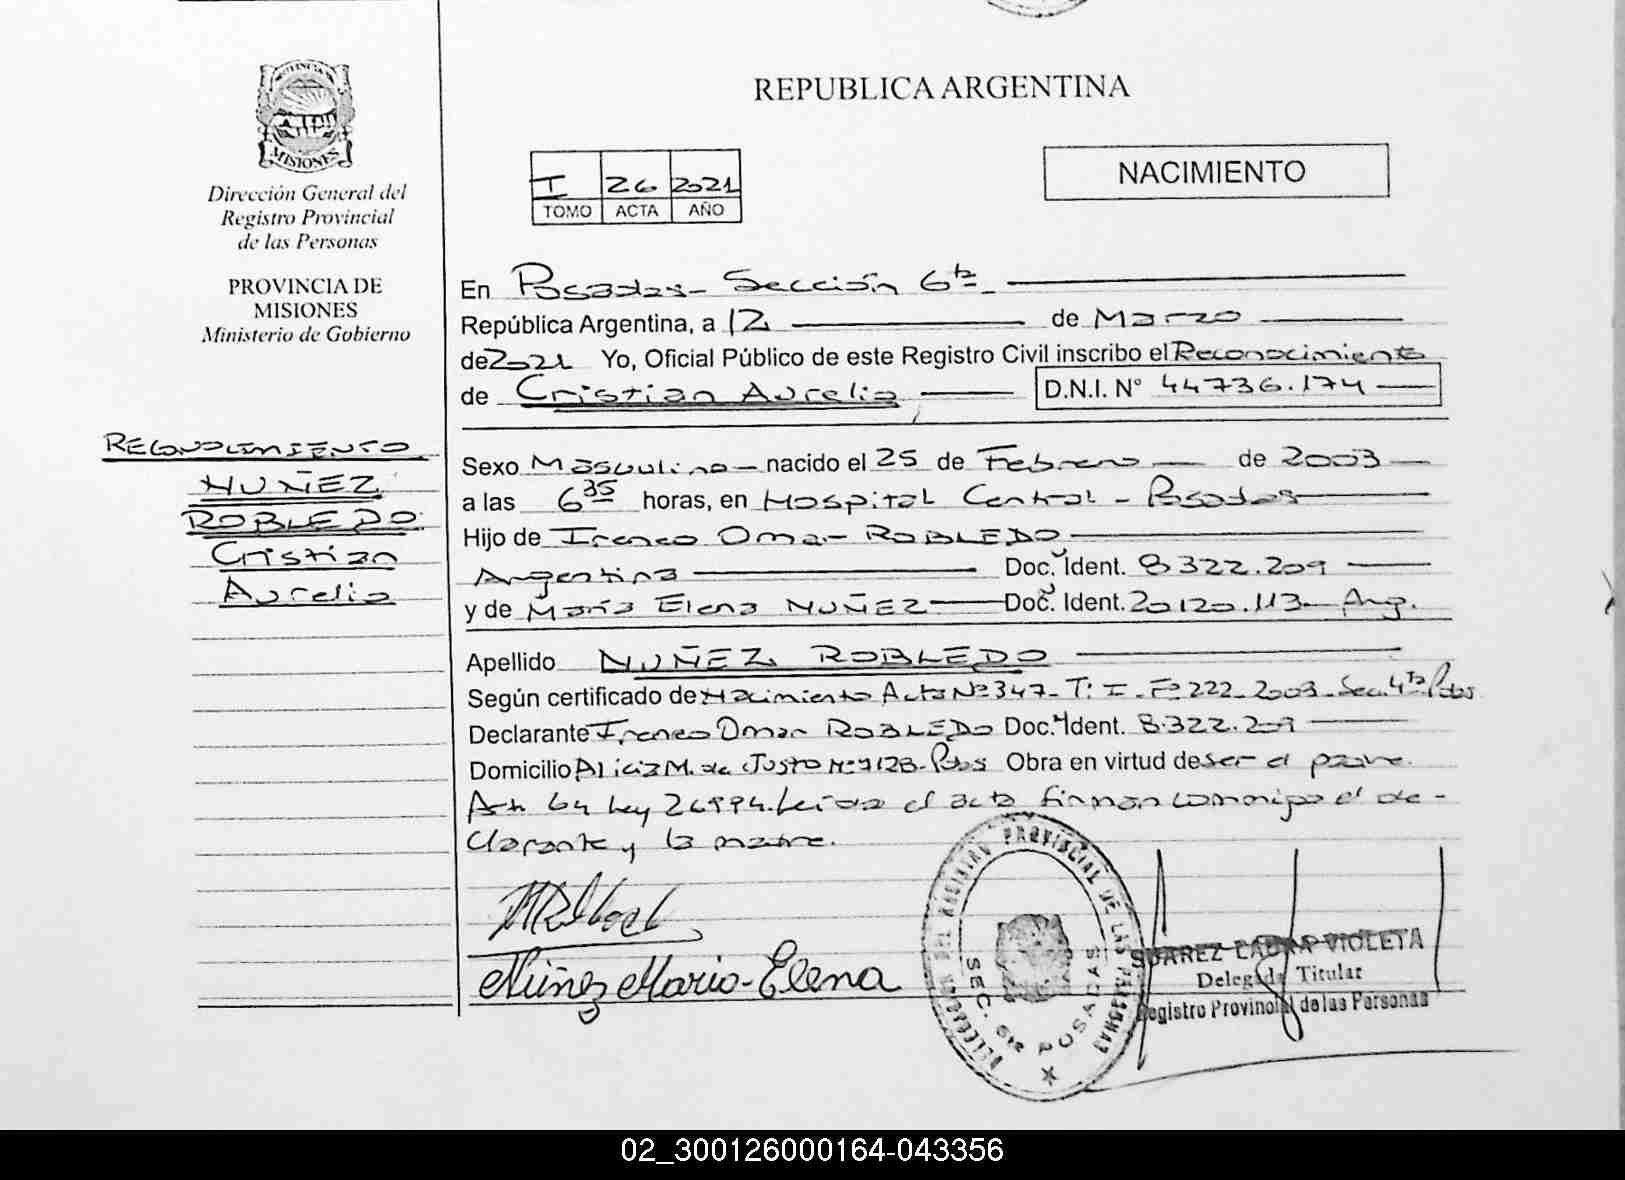 PROVINCIA DE
MISIONES
Dirección General del
Registro Provincial
de las Personas
PROVINCIA DE
MISIONES
Ministerio de Gobierno
RECONOCIMIENTO
NUÑEZ
ROBLEDO
Cristian
Aurelio
REPUBLICA ARGENTINA
I 26 2021
TOMO ACTA AÑO
NACIMIENTO
En Posadas - Sección 6ta
República Argentina, a 12 de Marzo
de 2021 Yo, Oficial Público de este Registro Civil inscribo el Reconocimiento
de Cristian Aurelio D.N.I. N° 44736.174
Sexo Masculino nacido el 25 de Febrero de 2003
a las 6 35 horas, en Hospital Central - Posadas
Hijo de Ireneo Omar ROBLEDO
Argentina Doc. Ident. 8.322.209
y de María Elena NUÑEZ Doc. Ident. 20120.113 Arg.
Apellido NUÑEZ ROBLEDO
Según certificado de Nacimiento Acta Nº 347 - T: I - Fº 222 - 2003 - Sec. 4ta Pdas
Declarante Ireneo Omar ROBLEDO Doc. Ident. 8.322.209
Domicilio Alicia M. de Justo Nº 9128 - Pdas Obra en virtud de ser el padre.
Art. 64 Ley 26994. Leída el acta firman conmigo el de-
clarante y la madre.
Núñez María-Elena
DELEGACION DEL REGISTRO PROVINCIAL DE LAS PERSONAS
SEC. 6ta POSADAS
SUAREZ LAURA VIOLETA
Delegada Titular
Registro Provincial de las Personas
02_300126000164-043356